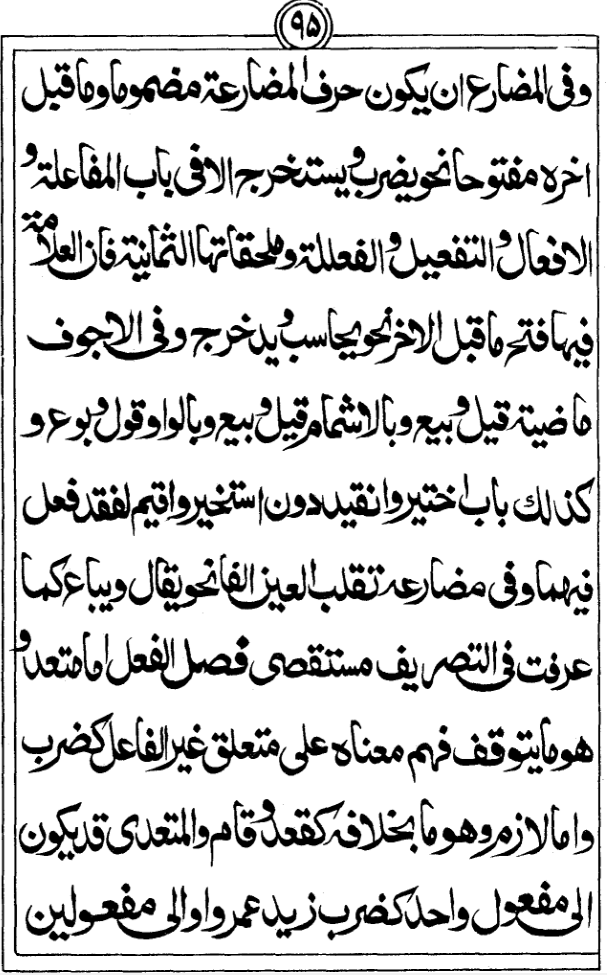 ٩٥
وفى المضارع ان يكون حرف المضارعة مضموما وما قبل
اخره مفتوحا نحو يضرب و يستخرج الا فى باب المفاعلة و
الافعال و التفعيل و الفعللة وملحقاتها الثمانية فان العلامة
فيها فتح ما قبل الاخر نحو يحاسب و يدخرج وفى الاجوف
ماضيته قيل و بيع وبالاشمام قيل و بيع وبالواو قول و بوع و
كذلك باب اختير وانقيد دون استخير واقيم لفقد فعل
فيهما وفى مضارعه تقلب العين الفا نحو يقال ويباع كما
عرفت فى التصريف مستقصى فصل الفعل اما متعد و
هو ما يتوقف فهم معناه على متعلق غير الفاعل كضرب
واما لازم وهو ما بخلافه كقعد و قام والمتعدى قد يكون
الى مفعول واحد كضرب زيد عمروا والى مفعولين